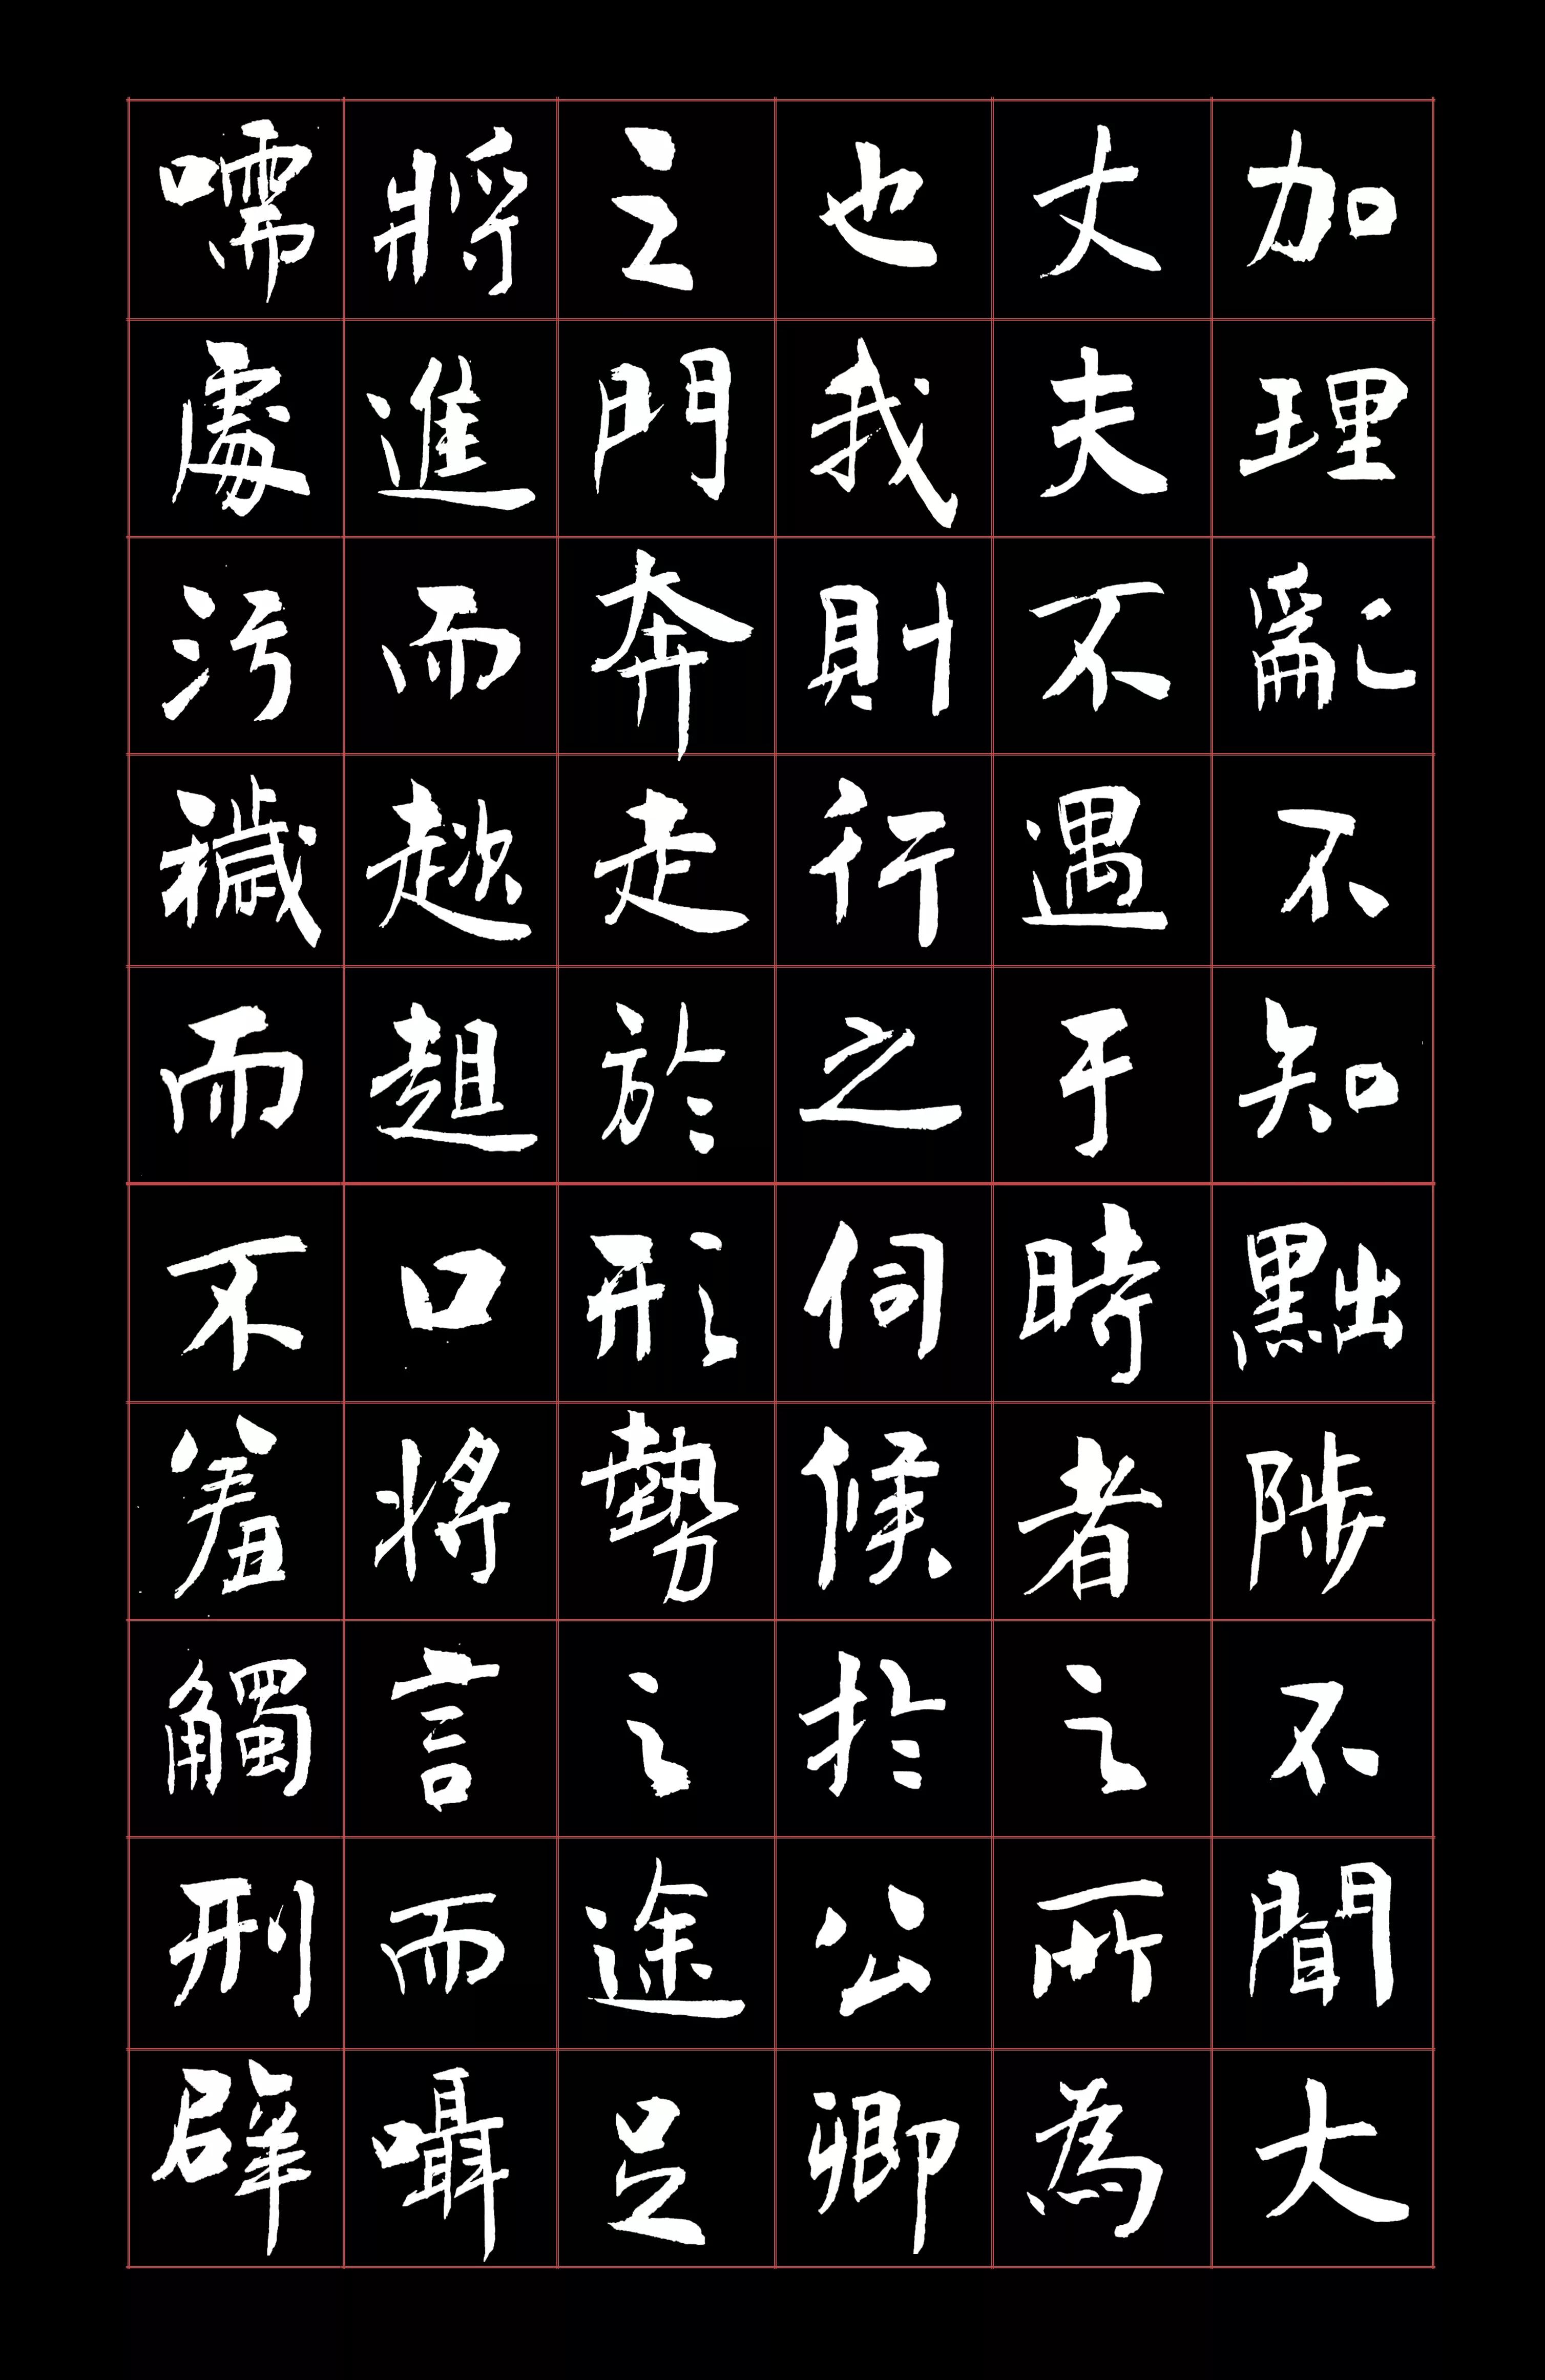 加理亂不知黜陟不聞大
丈夫不遇于時者之所為
也我則行之伺候於公卿
之門奔走於形勢之途足
將進而趑趄口將言而囁
嚅處污穢而不羞觸刑辟